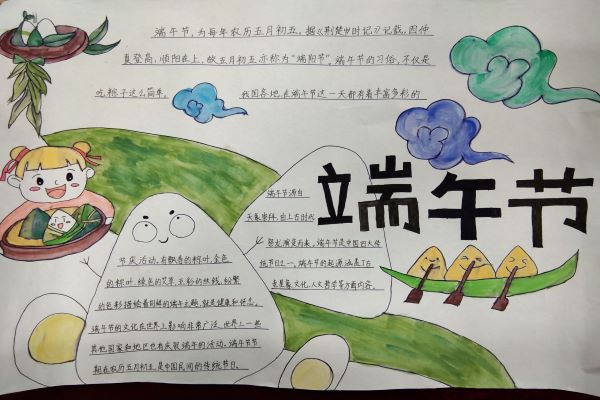 端午节,为每年农历五月初五,据《荆楚岁时记》记载,因仲
夏登高,顺阳在上,故五月初五亦称为"端阳节",端午节的习俗,不仅是
吃粽子这么简单,我国各地,在端午节这一天都有着丰富多彩的
端午节
端午节源自
天象崇拜,由上古时代
祭龙演变而来,端午节是中国四大传
统节日之一,端午节的起源,涵盖了古
老星象文化,人文哲学等方面内容。
节庆活动,有飘香的粽叶,金色
的粽叶,绿色的艾草,五彩的丝线,纷繁
的色彩描绘着同样的端午主题,就是健康和
端午节的文化在世界上影响非常广泛,世界上一些
其他国家和地区也有庆祝端午的活动。端午节节
期在农历五月初五,是中国民间的传统节日。